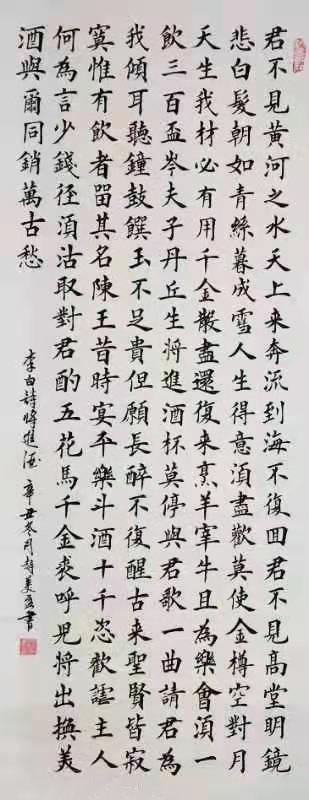 君不見黃河之水天上来奔流到海不復囬君不見高堂明鏡
悲白髮朝如青絲暮成雪人生得意須盡歡莫使金樽空對月
天生我材必有用千金散盡還復来烹羊宰牛且為樂會須一
飲三百盃岑夫子丹丘生將進酒杯莫停與君歌一曲請君為
我傾耳聽鐘鼓饌玉不足貴但願長醉不復醒古来聖賢皆寂
寞惟有飲者留其名陳王昔時宴平樂斗酒十千恣歡謔主人
何為言少錢徑須沽取對君酌五花馬千金裘呼兒將出換美
酒與爾同銷萬古愁
李白詩將進酒 辛丑冬月趙美書